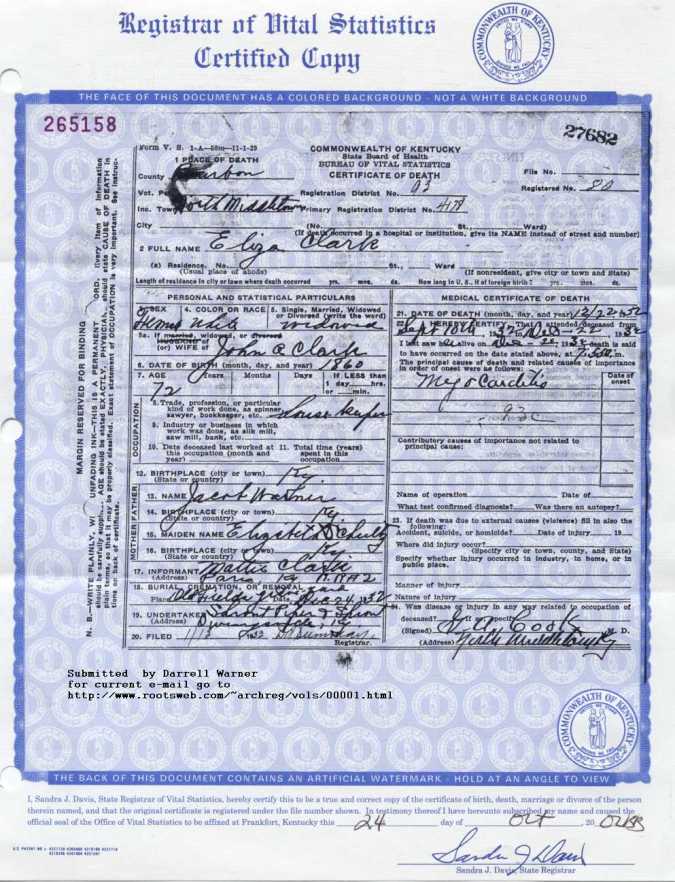 Registrar of Vital Statistics
Certified Copy
COMMONWEALTH OF KENTUCKY
THE FACE OF THIS DOCUMENT HAS A COLORED BACKGROUND - NOT A WHITE BACKGROUND
265158
27682
Form V. S. 1-A—50m—11-1-29
COMMONWEALTH OF KENTUCKY
State Board of Health
BUREAU OF VITAL STATISTICS
CERTIFICATE OF DEATH
1 PLACE OF DEATH
County Bourbon
File No.
Registration District No. 93
Registered No. 80
Vot. P
Inc. Town North Middletown Primary Registration District No. 4178
City (No. St., Ward)
(If death occurred in a hospital or institution, give its NAME instead of street and number)
2 FULL NAME Eliza Clark
(a) Residence. No. St., Ward
(Usual place of abode) (If nonresident, give city or town and State)
Length of residence in city or town where death occurred yrs. mos. ds. How long in U. S., if of foreign birth? yrs. mos. ds.
PERSONAL AND STATISTICAL PARTICULARS
3. SEX 4. COLOR OR RACE 5. Single, Married, Widowed
or Divorced (write the word)
White widowed
5a. If married, widowed, or divorced
HUSBAND of
(or) WIFE of John Clark
6. DATE OF BIRTH (month, day, and year) 1860
7. AGE Years Months Days If LESS than
1 day hrs.
or min.
72
OCCUPATION
8. Trade, profession, or particular
kind of work done, as spinner,
sawyer, bookkeeper, etc. House keeper
9. Industry or business in which
work was done, as silk mill,
saw mill, bank, etc.
10. Date deceased last worked at 11. Total time (years)
this occupation (month and spent in this
year) occupation
12. BIRTHPLACE (city or town) Ky.
(State or country)
FATHER
13. NAME Jacob Warner
14. BIRTHPLACE (city or town) Ky
(State or country)
MOTHER
15. MAIDEN NAME Elizabeth Schultz
16. BIRTHPLACE (city or town) Ky
(State or country)
17. INFORMANT Mattie Clark
(Address) Paris Ky
18. BURIAL, CREMATION, OR REMOVAL
Place Date Dec 24 1932
19. UNDERTAKER
(Address)
20. FILED 1932
Registrar.
MEDICAL CERTIFICATE OF DEATH
21. DATE OF DEATH (month, day, and year) 12/22 1932
22. I HEREBY CERTIFY, That I attended deceased from
Sept 10th 1932, to Dec - 22 1932
I last saw alive on Dec - 22 1932 death is said
to have occurred on the date stated above, at m.
The principal cause of death and related causes of importance
in order of onset were as follows:
Date of
onset
Myo Carditis
93
Contributory causes of importance not related to
principal cause:
Name of operation Date of
What test confirmed diagnosis? Was there an autopsy?
23. If death was due to external causes (violence) fill in also the
following:
Accident, suicide, or homicide? Date of injury 19
Where did injury occur?
(Specify city or town, county, and State)
Specify whether injury occurred in industry, in home, or in
public place.
Manner of injury
Nature of injury
24. Was disease or injury in any way related to occupation of
deceased? If so, specify
(Signed) Cook M. D.
(Address) North Middletown Ky
MARGIN RESERVED FOR BINDING
Submitted by Darrell Warner
for current e-mail go to
http://www.rootsweb.com/~archreg/vols/00001.html
COMMONWEALTH OF KENTUCKY
THE BACK OF THIS DOCUMENT CONTAINS AN ARTIFICIAL WATERMARK - HOLD AT AN ANGLE TO VIEW
I, Sandra J. Davis, State Registrar of Vital Statistics, hereby certify this to be a true and correct copy of the certificate of birth, death, marriage or divorce of the person
therein named, and that the original certificate is registered under the file number shown. In testimony thereof I have hereunto subscribed my name and caused the
official seal of the Office of Vital Statistics to be affixed at Frankfort, Kentucky this 24 day of Oct , 20
Sandra J Davis
Sandra J. Davis, State Registrar